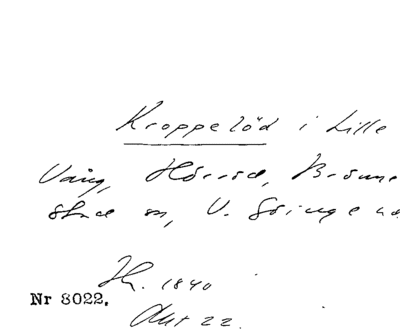 Kroppelöd i Lille
Vång, Hörröd, Brönne
sn, V. Göinge
Hr. 1840
Nr 8022.
Akt 22.